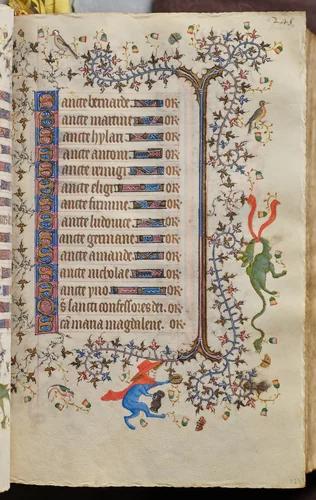 Sancte bernarde. or
Sancte martine or
Sancte hylari or
Sancte antoni or
Sancte remigi or
Sancte eligi or
Sancte firmine or
Sancte ludovice or
Sancte germane or
Sancte amande or
Sancte nicolae or
Sancte yvo or
Os sancti confessores dei. or
Sca maria magdalene. or